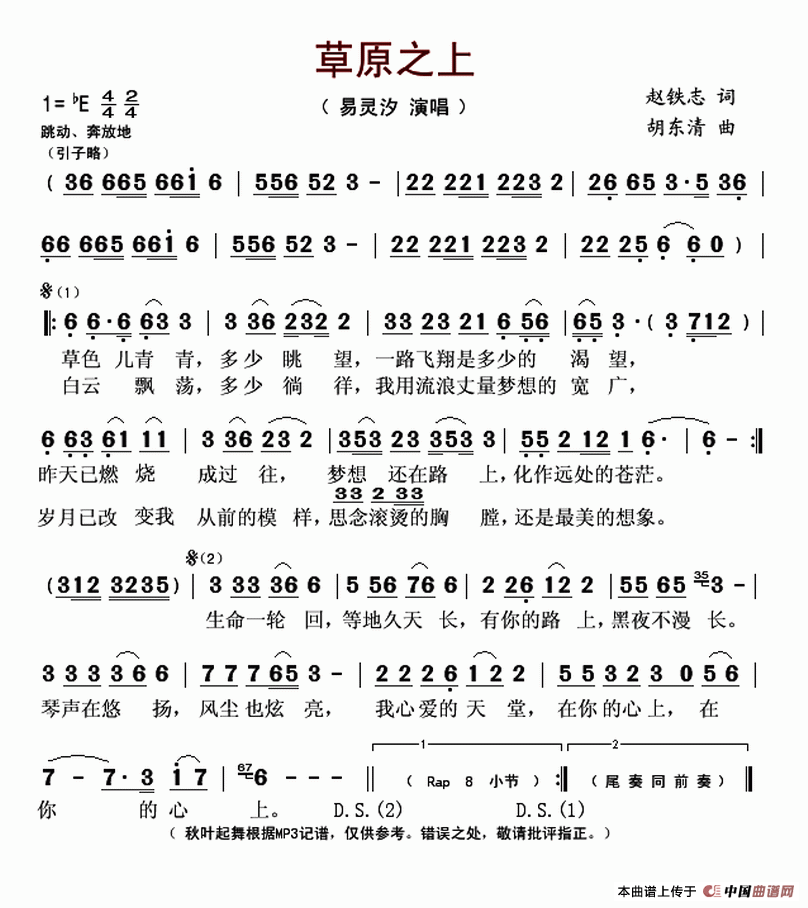 草原之上
1=♭E 4/4 2/4
（易灵汐 演唱）
赵铁志 词
胡东清 曲
跳动、奔放地
（引子略）
( 36 665 661 6 | 556 52 3 - | 22 221 223 2 | 26 65 3·5 36 |
66 665 661 6 | 556 52 3 - | 22 221 223 2 | 22 225 6 6 0 ) |
𝄋(1)
‖: 6 6·6 63 3 | 3 36 232 2 | 33 23 21 6 56 | 65 3·( 3 712 ) |
草色 儿青 青，多少 眺 望，一路飞翔是多少的 渴 望，
白云 飘 荡，多少 徜 徉，我用流浪丈量梦想的 宽 广，
6 663 61 11 | 3 36 23 2 | 353 23 353 3 | 55 2 12 1 6· | 6 - :‖
昨天已燃 烧 成过 往， 梦想 还在路 上，化作远处的苍茫。
33 2 33
岁月已改 变我 从前的模 样，思念滚烫的胸 膛，还是最美的想象。
𝄋(2)
( 312 3235 ) | 3 33 36 6 | 5 56 76 6 | 2 26 12 2 | 55 65 35 3 - |
生命一轮 回，等地久天 长，有你的路 上，黑夜不漫 长。
3 3 3 3 6 6 | 7 7 7 65 3 - | 2 2 2 6 1 2 2 | 5 5 3 2 3 0 5 6 |
琴声在悠 扬， 风尘也炫 亮， 我心爱的 天 堂，在你的心上，在
1 2
7 - 7· 3 1 7 | 67 6 - - - ‖ （ Rap 8 小节 ）:‖（尾奏同前奏）‖
你 的心 上。 D.S.(2) D.S.(1)
（ 秋叶起舞根据MP3记谱，仅供参考。错误之处，敬请批评指正。）
本曲谱上传于 中国曲谱网